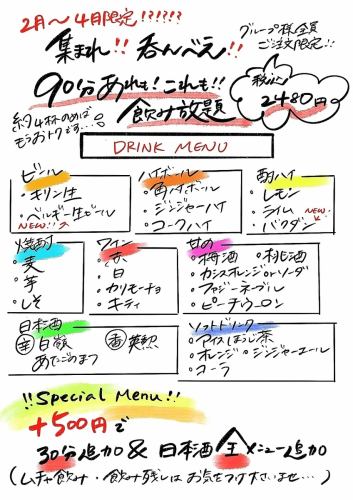 2月〜4月限定!!!!!!
グループ様全員
ご注文限定!!
集まれ!! 呑んべえ!!
90分あれも!これも!!
飲み放題
税込
2480円
約4杯のめば
もうおトクです…!
DRINK MENU
ビール
・キリン生
・ベルギー生ビール
NEW!!
ハイボール
・角ハイボール
・ジンジャーハイ
・コークハイ
酎ハイ
・レモン
・ライム NEW
・バクダン
焼酎
・麦
・芋
・しそ
ワイン
・赤
・白
・カリモーチョ
・キティ
甘め
・梅酒 ・桃酒
・カシスオレンジorソーダ
・ファジーネーブル
・ピーチウーロン
日本酒
辛 白嶺
あたごのまつ
香 英勲
ソフトドリンク
・アイスほうじ茶
・オレンジ・ジンジャーエール
・コーラ
!!Special Menu!!
+500円で
30分追加&日本酒 王 メニュー追加
(ムチャ飲み・飲み残しはお気をつけ下さいませ…)